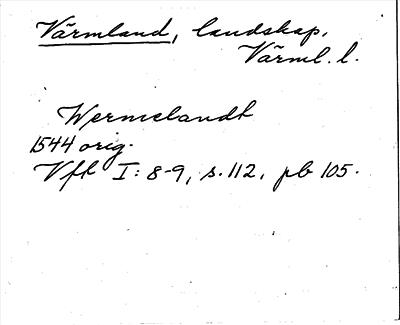 Värmland, landskap.
Värml. l.
Wermelandt
1544 orig.
Vfk I: 8-9, s. 112, pb 105.